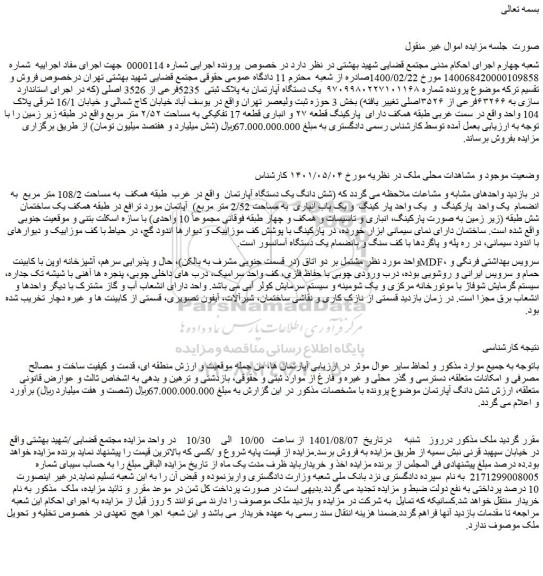 بسمه تعالی
صورت جلسه مزایده اموال غیر منقول
شعبه چهارم اجرای احکام مدنی مجتمع قضایی شهید بهشتی در نظر دارد در خصوص پرونده اجرایی شماره 0000114 جهت اجرای مفاد اجراییه شماره
140068420000109858 مورخ 1400/02/22صادره از شعبه محترم 11 دادگاه عمومی حقوقی مجتمع قضایی شهید بهشتی تهران درخصوص فروش و
تقسیم ترکه موضوع پرونده شماره ۹۷۰۹۹۸۰۲۲۷۱۰۱۱۶۸ یک دستگاه آپارتمان به پلاک ثبتی 5235فرعی از 3526 اصلی (که در اجرای استاندارد
سازی به ۶۳۲۶۶فرعی از ۳۵۲۶اصلی تغییر یافته) بخش 3 حوزه ثبت ولیعصر تهران واقع در یوسف آباد خیابان کاج شمالی و خیابان 16/1 شرقی پلاک
104 واحد واقع در سمت غربی طبقه همکف دارای پارکینگ قطعه ۲۷ و انباری قطعه 17 تفکیکی به مساحت ۲/۵۲ متر مربع واقع در طبقه زیر زمین را با
توجه به ارزیابی بعمل آمده توسط کارشناس رسمی دادگستری به مبلغ 67.000.000.000ریال (شش میلیارد و هفتصد میلیون تومان) از طریق برگزاری
مزایده بفروش برساند.
وضعیت موجود و مشاهدات محلی ملک در نظریه مورخ ۱۴۰۱/۰۵/۰۴ کارشناس
در بازدید واحدهای مشابه و مشاعات ملاحظه می گردد که (شش دانگ یک دستگاه آپارتمان واقع در غرب طبقه همکف به مساحت 108/2 متر مربع به
انضمام یک واحد پارکینگ و یک واحد پار کینگ و یک باب انباری به مساحت 2/52 متر مربع) آپتمان مورد ترافع در طبقه همکف یک ساختمان
شش طبقه (زیر زمین به صورت پارکینگ، انباری و تاسیسات و همکف و چهار طبقه فوقانی مجموعاً 10 واحدی) با سازه اسکلت بتنی و موقعیت جنوبی
واقع شده است. ساختمان دارای نمای سیمانی ابزار خورده، در پارکینگ با پوشش کف موزاییک و دیوارها اندود گچ، در حیاط با کف موزاییک و دیوارهای
با اندود سیمانی، در ره پله و پاگردها با کف سنگ و بانضمام یک دستگاه آسانسور است.
سرویس بهداشتی فرنگی و ،MDFواحد مورد نظر مشتمل بر دو اتاق (در قسمت جنوبی مشرف به بالکن)، حال و پذیرایی سرهم، آشپزخانه اوپن با کابینت
حمام و سرویس ایرانی و روشویی بوده، درب ورودی چوبی با حفاظ فلزی، کف واحد سرامیک، درب های داخلی چوبی، پنجره ها آهنی با شیشه تک جداره،
سیستم گرمایش شوفاژ با موتورخانه مرکزی و یک شومینه و سیستم سرمایش کولر آبی می باشد. واحد دارای انشعاب آب و گاز مشترک با دیگر واحدها و
انشعاب برق مجزا است. در زمان بازدید قسمتی از نازک کاری و نقاشی ساختمان، شیرآلات، آیفون تصویری، قسمتی از کابینت ها و غیره دچار تخریب شده
بود.
نتیجه کارشناسی
باتوجه به جمیع موارد مذکور و لحاظ سایر عوال موثر در ارزیابی آپارتمان ها، من جمله موقعیت و ارزش منطقه ای، قدمت و کیفیت ساخت و مصالح
مصرفی و امکانات متعلقه، دسترسی و گذر محلی و غیره و فارغ از موارد ثبتی و حقوقی، بازدشتی و ترهین و بدهی به اشخاص ثالث و عوارض قانونی
متعلقه، ارزش شش دانگ آپارتمان موضوع پرونده با مشخصات مذکور در این گزارش به مبلغ 67.000.000.000ریال (شصت و هفت میلیاردریال) برآورد
و اعلام می گردد.
مقرر گردید ملک مذکور درروز شنبه درتاریخ 1401/08/07 از ساعت 10/00 الی 10/30 در واحد مزایده مجتمع قضایی /شهید بهشتی واقع
در خیابان سپهبد قرنی نبش سمیه از طریق مزایده به فروش برسد.مزایده از قیمت پایه شروع و /کسی که بالاترین قیمت را پیشنهاد نماید برنده مزایده خواهد
بود.ده درصد مبلغ پیشنهادی فی المجلس از برنده مزایده اخذ و خریدارباید ظرف مدت یک ماه از تاریخ مزایده الباقی مبلغ را به حساب سیبای شماره
2171299008005 به نام سپرده دادگستری نزد بانک ملی شعبه وزارت دادگستری واریزنموده و قبض آن را به این شعبه تسلیم نماید.درغیر اینصورت
10 درصد پرداختی به نفع دولت ضبط و مزایده تجدید می گردد.بدیهی است در صورت پرداخت کل ثمن در موعد مقرر و تائید مزایده، ملک مذکور به نام
خریدار منتقل خواهد شد.کسانیکه که تمایل به شرکت در مزایده و بازدید ملک موصوف را دارند می توانند 5 روز قبل از مزایده به اجرای احکام این شعبه
مراجعه تا مقدمات بازدید آنها فراهم گردد.ضمنا هزینه انتقال سند رسمی به عهده خریدار می باشد و این شعبه اجرا هیچ تعهدی در خصوص تخلیه و تحویل
ملک موصوف ندارد.